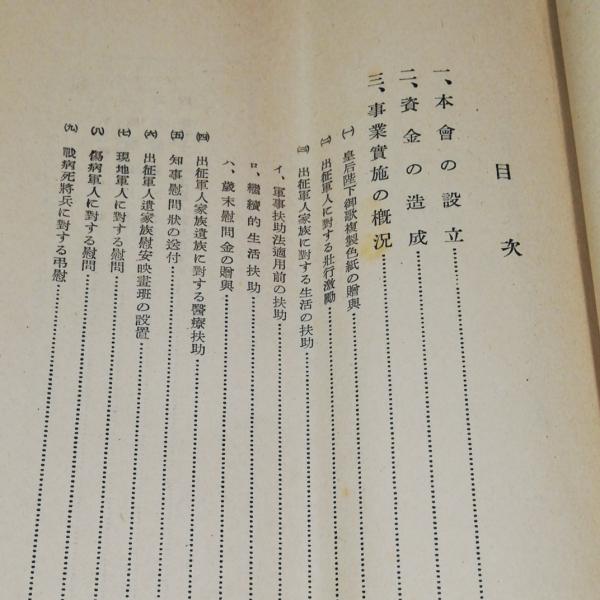 目次
一、本會の設立
二、資金の造成
三、事業實施の槪況
㈠ 皇后陛下御歌複製色紙の贈與
㈡ 出征軍人に對する壯行激勵
㈢ 出征軍人家族に對する生活の扶助
イ、軍事扶助法適用前の扶助
ロ、繼續的生活扶助
ハ、歲末慰問金の贈與
㈣ 出征軍人家族遺族に對する醫療扶助
㈤ 知事慰問狀の送付
㈥ 出征軍人遺家族慰安映畫班の設置
㈦ 現地軍人に對する慰問
㈧ 傷病軍人に對する慰問
㈨ 戰病死將兵に對する弔慰